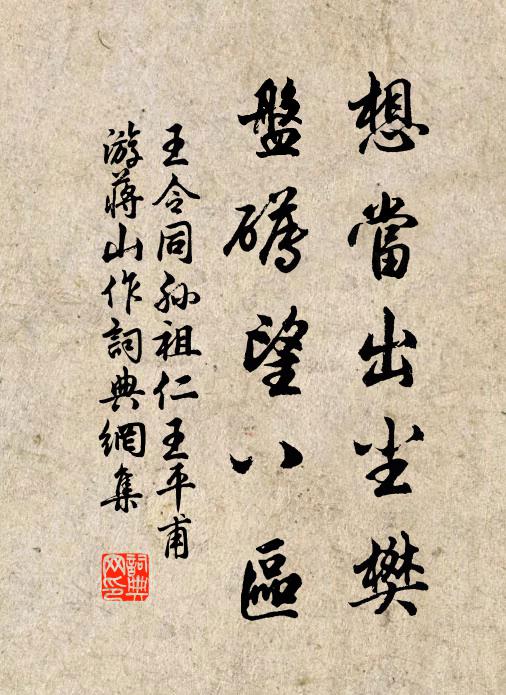 想當出尘樊
盤礴望八區
王令同孙祖仁王平甫
游蔣山作詞典網集
詞典
网印